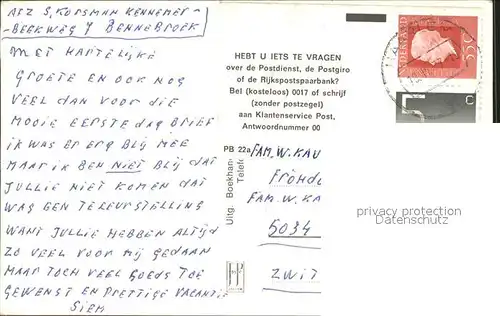 AFZ S. KORSMAN KENNEMER-
BEEKWEG 4 BENNEBROEK
MET HARTELIJKE
GROETE EN OOK NOG
VEEL DAN VOOR DIE
MOOIE EERSTE DAG BRIEF
IK WAS ER ERG BLIJ MEE
MAAR IK BEN NIET BLIJ DAT
JULLIE NIET KOMEN DAT
WAS EEN TELEURSTELLING
WANT JULLIE HEBBEN ALTIJD
ZO VEEL VOOR MIJ GEDAAN
MAAR TOCH VEEL GOEDS TOE
GEWENST EN PRETTIGE VACANTIE
SIEM
HEBT U IETS TE VRAGEN
over de Postdienst, de Postgiro
of de Rijkspostspaarbank?
Bel (kosteloos) 0017 of schrijf
(zonder postzegel)
aan Klantenservice Post,
Antwoordnummer 00
PB 22a
Uitg. Boekhan
Telefo
FAM. W. KAU
FRÖHD
FAM. W. KA
5034
ZWIT
NEDERLAND
55c
privacy protection
Datenschutz